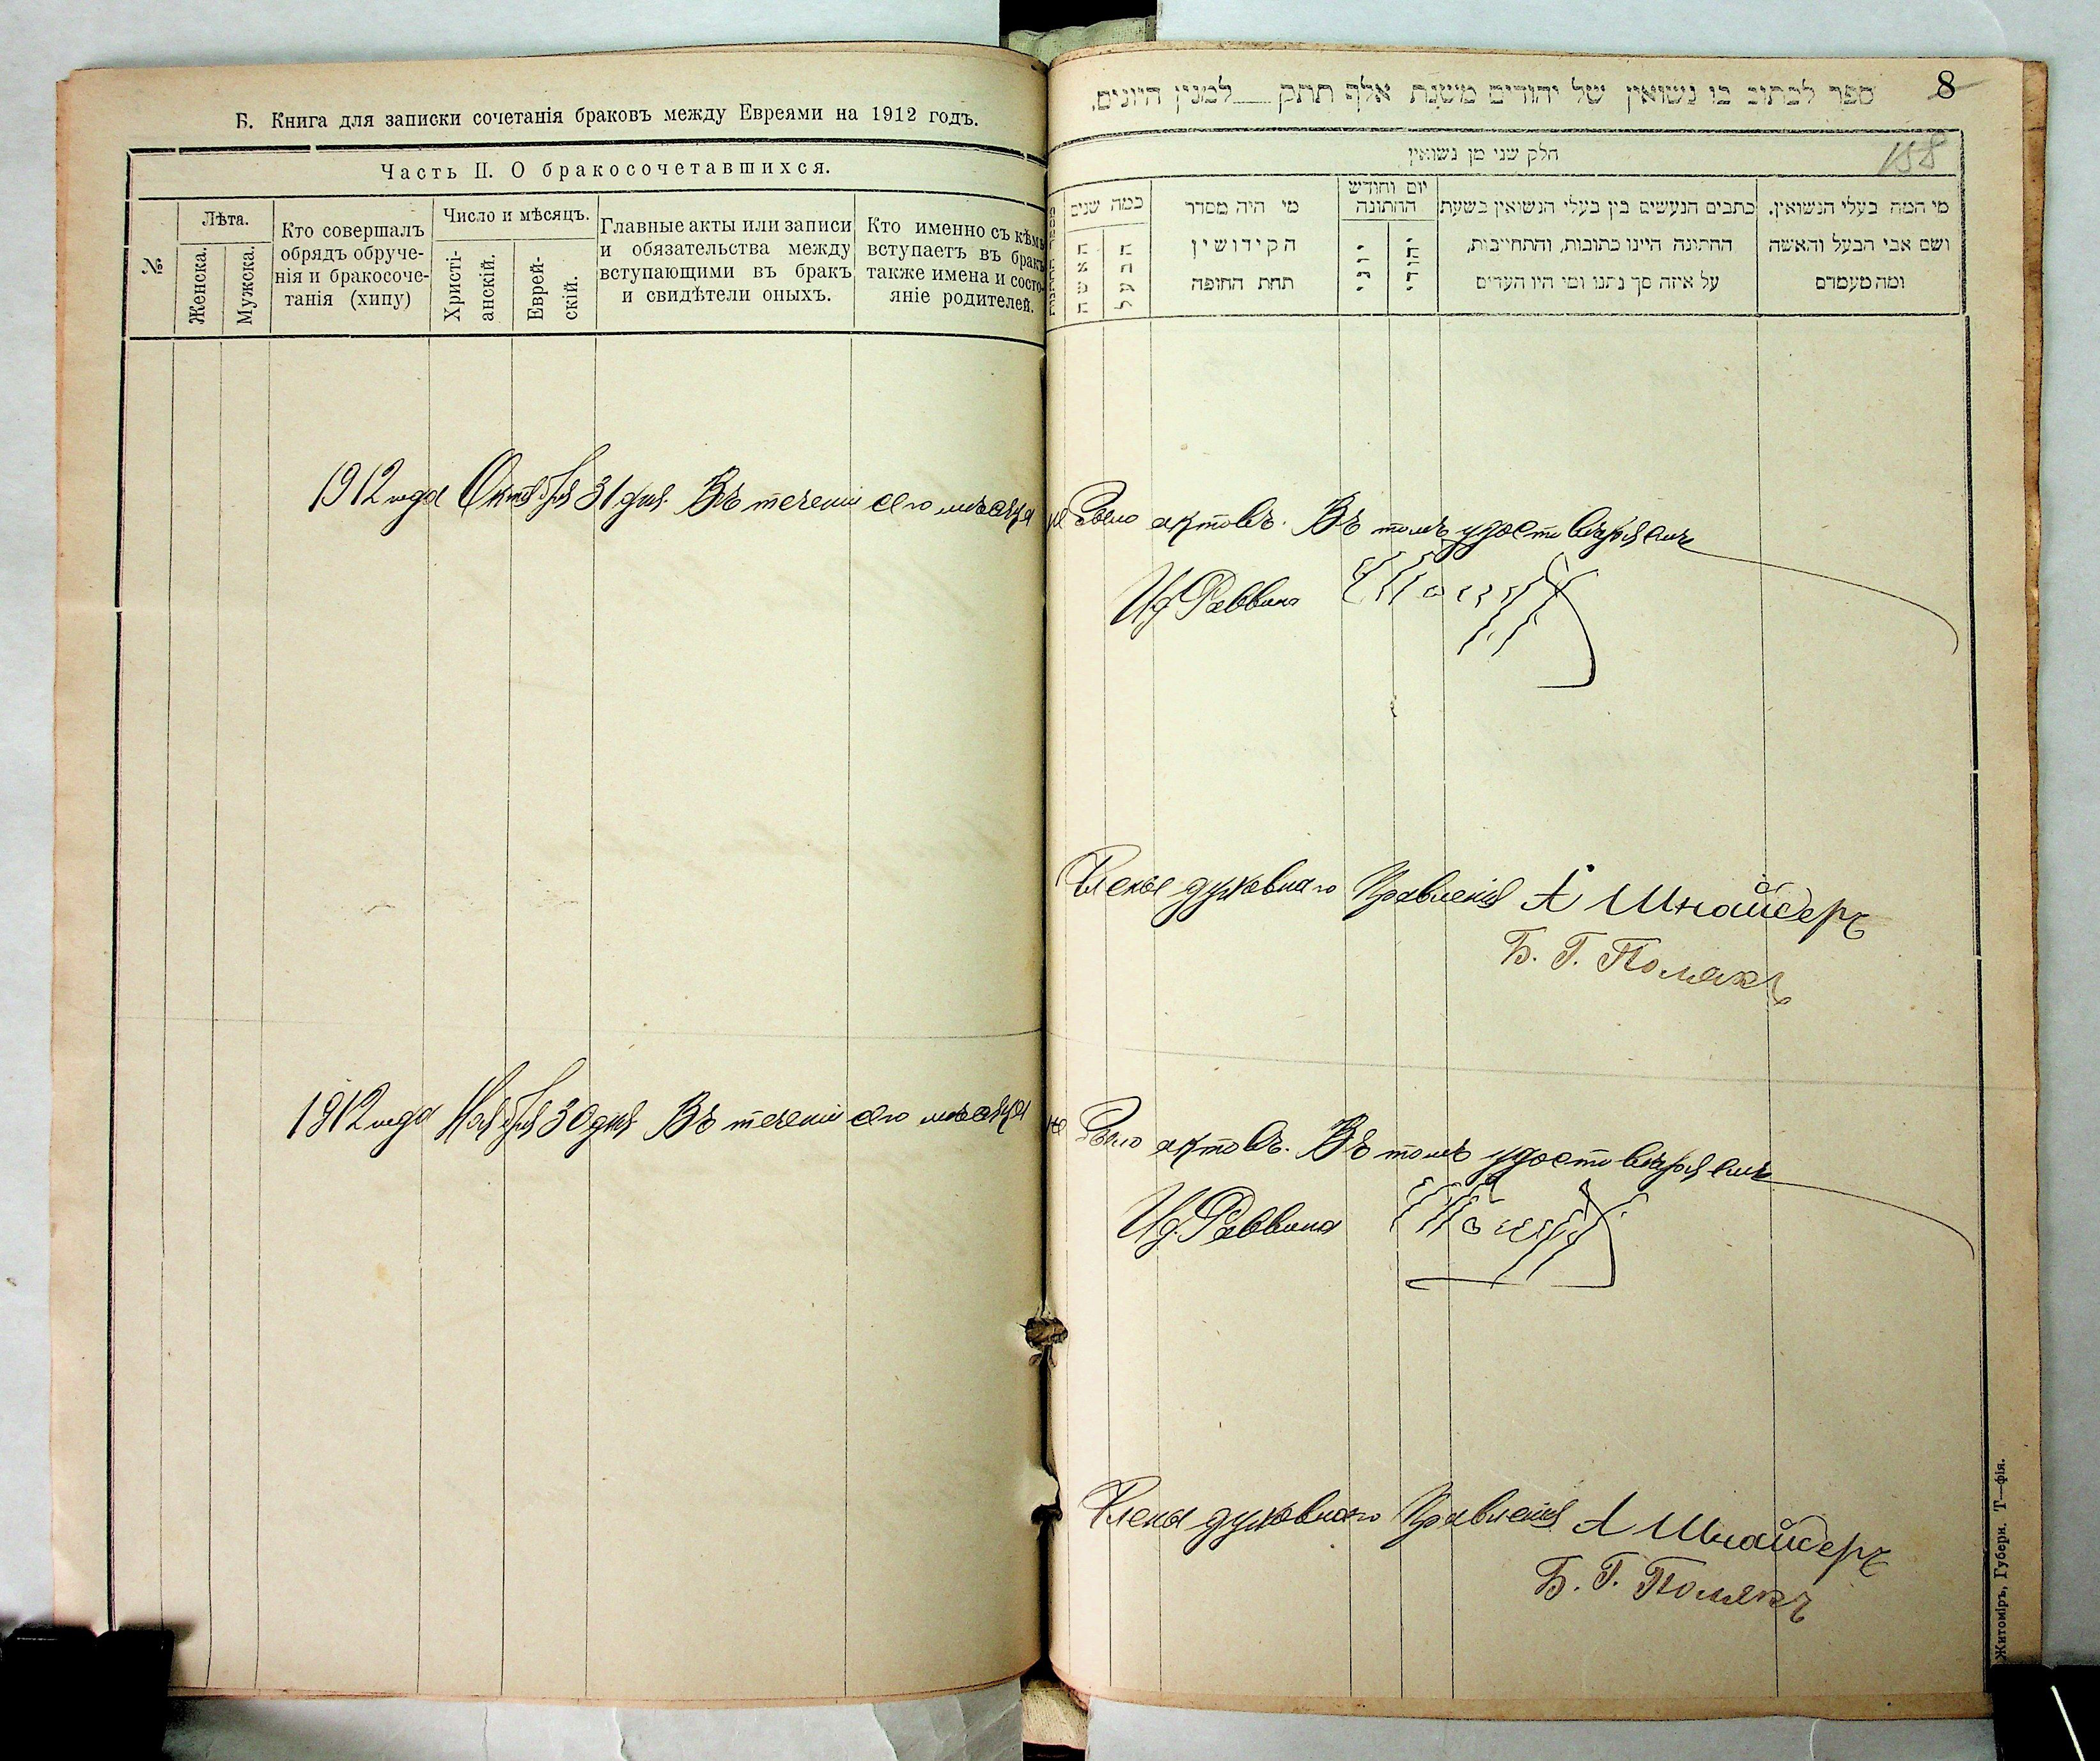 Б. Книга для записки сочетанія браковъ между Евреями на 1912 годъ.
Часть II. О бракосочетавшихся.
№
Лѣта.
Женска.
Мужска.
Кто совершалъ
обрядъ обруче-
нія и бракосоче-
танія (хипу)
Число и мѣсяцъ.
Христі-
анскій.
Еврей-
скій.
Главные акты или записи
и обязательства между
вступающими въ бракъ
и свидѣтели оныхъ.
Кто именно съ кѣмъ
вступаетъ въ бракъ
также имена и состо-
яніе родителей.
ספר לכתוב בו נשואין של יהודים משנת אלף תתק למנין היונים.
8
158
חלק שני מן נשואין
כמה שנים
האשה
הבעל
מי היה מסדר
הקידושין
תחת החופה
יום וחודש
החתונה
יוני
יהודי
כתבים הנעשים בין בעלי הנשואין בשעת
החתונה היינו כתובות, והתחייבות,
על איזה סך נתנו ומי היו העדים
מי המה בעלי הנשואין.
ושם אבי הבעל והאשה
ומה מעמדם
1912 года Октября 31 дня. Въ теченіи сего мѣсяца не было актовъ. Въ томъ удостовѣряемъ
И д. Раввина
Члены духовнаго Правленія А Шнайдеръ
Б. Г. Полякъ
1912 года Ноября 30 дня Въ теченіи сего мѣсяца не было актовъ. Въ томъ удостовѣряемъ
И д. Раввина
Члены духовнаго Правленія А Шнайдеръ
Б. Г. Полякъ
Житоміръ, Губерн. Т—фія.